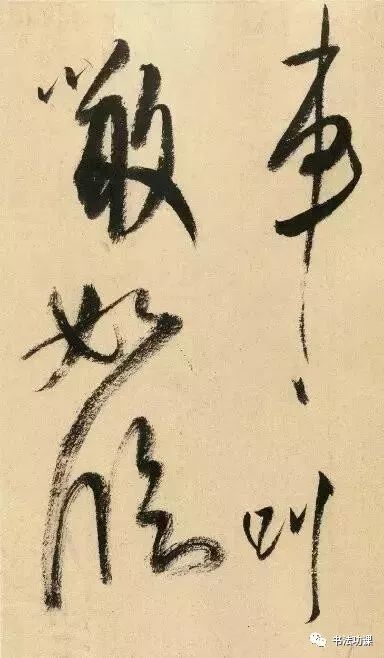 事〻則
嚴如臨
书法功课